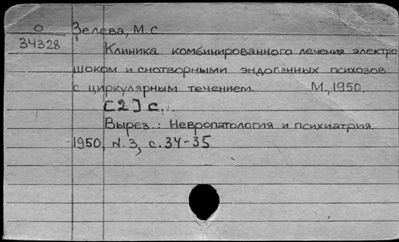 О
34328
Зелева, М.С.
Клиника комбинированного лечения электро
шоком и снотворными эндогенных психозов
с циркулярным течением. М., 1950.
[2] с.
Вырез.: Невропатология и психиатрия
1950, N. 3, с. 34-35